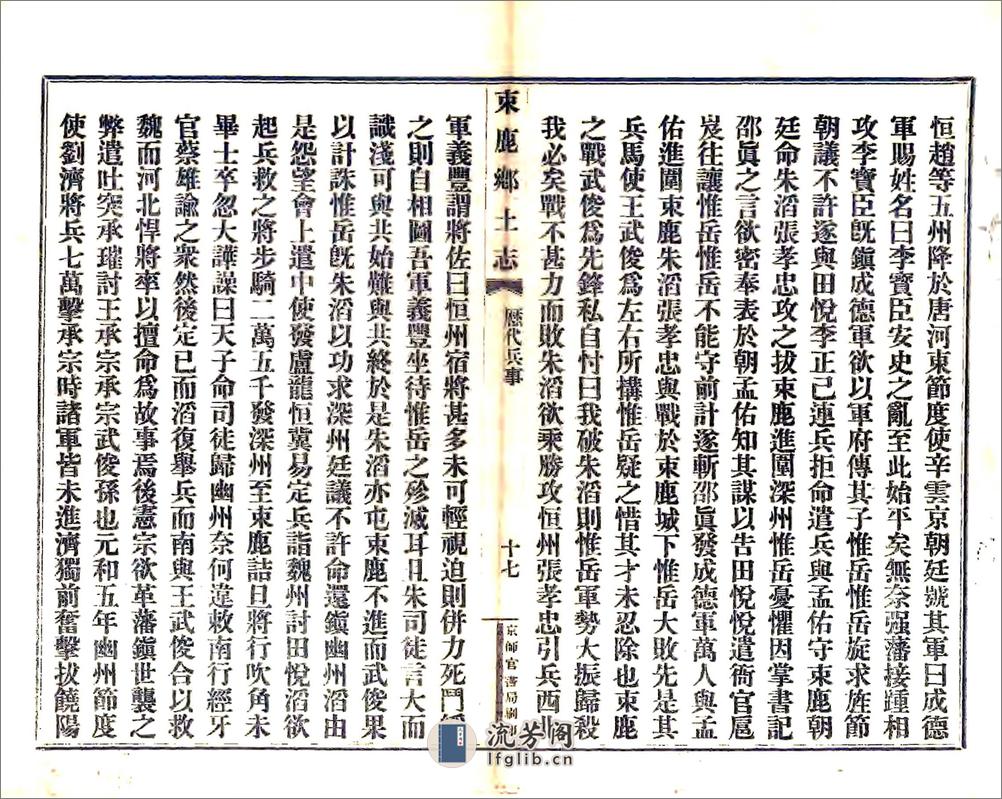 恒趙等五州降於唐河東節度使辛雲京朝廷號其軍曰成德
軍賜姓名曰李寶臣安史之亂至此始平矣無奈强藩接踵相
攻李寶臣旣鎭成德軍欲以軍府傳其子惟岳惟岳旋求旌節
朝議不許遂與田悅李正已連兵拒命遣兵與孟佑守束鹿朝
廷命朱滔張孝忠攻之拔束鹿進圍深州惟岳憂懼因掌書記
邵眞之言欲密奉表於朝孟佑知其謀以吿田悅悅遣衙官扈
岌往讓惟岳惟岳不能守前計遂斬邵眞發成德軍萬人與孟
佑進圍束鹿朱滔張孝忠與戰於束鹿城下惟岳大敗先是其
兵馬使王武俊爲左右所搆惟岳疑之惜其才未忍除也束鹿
之戰武俊爲先鋒私自忖曰我破朱滔則惟岳軍勢大振歸殺
我必矣戰不甚力而敗朱滔欲乘勝攻恒州張孝忠引兵西北
束鹿鄕土志 歷代兵事 十七 京師官書局刷印
軍義豐謂將佐曰恒州宿將甚多未可輕視迫則併力死鬥緩
之則自相圖吾軍義豐坐待惟岳之殄滅耳且朱司徒言大而
識淺可與共始難與共終於是朱滔亦屯束鹿不進而武俊果
以計誅惟岳旣朱滔以功求深州廷議不許命還鎭幽州滔由
是怨望會上遣中使發盧龍恒冀易定兵詣魏州討田悅滔欲
起兵救之將步騎二萬五千發深州至束鹿詰旦將行吹角未
畢士卒忽大譁譟曰天子命司徒歸幽州奈何違敕南行經牙
官蔡雄諭之衆然後定已而滔復舉兵而南與王武俊合以救
魏而河北悍將率以擅命爲故事焉後憲宗欲革藩鎭世襲之
弊遣吐突承璀討王承宗承宗武俊孫也元和五年幽州節度
使劉濟將兵七萬擊承宗時諸軍皆未進濟獨前奮擊拔饒陽
流芳閣
lfglib.cn